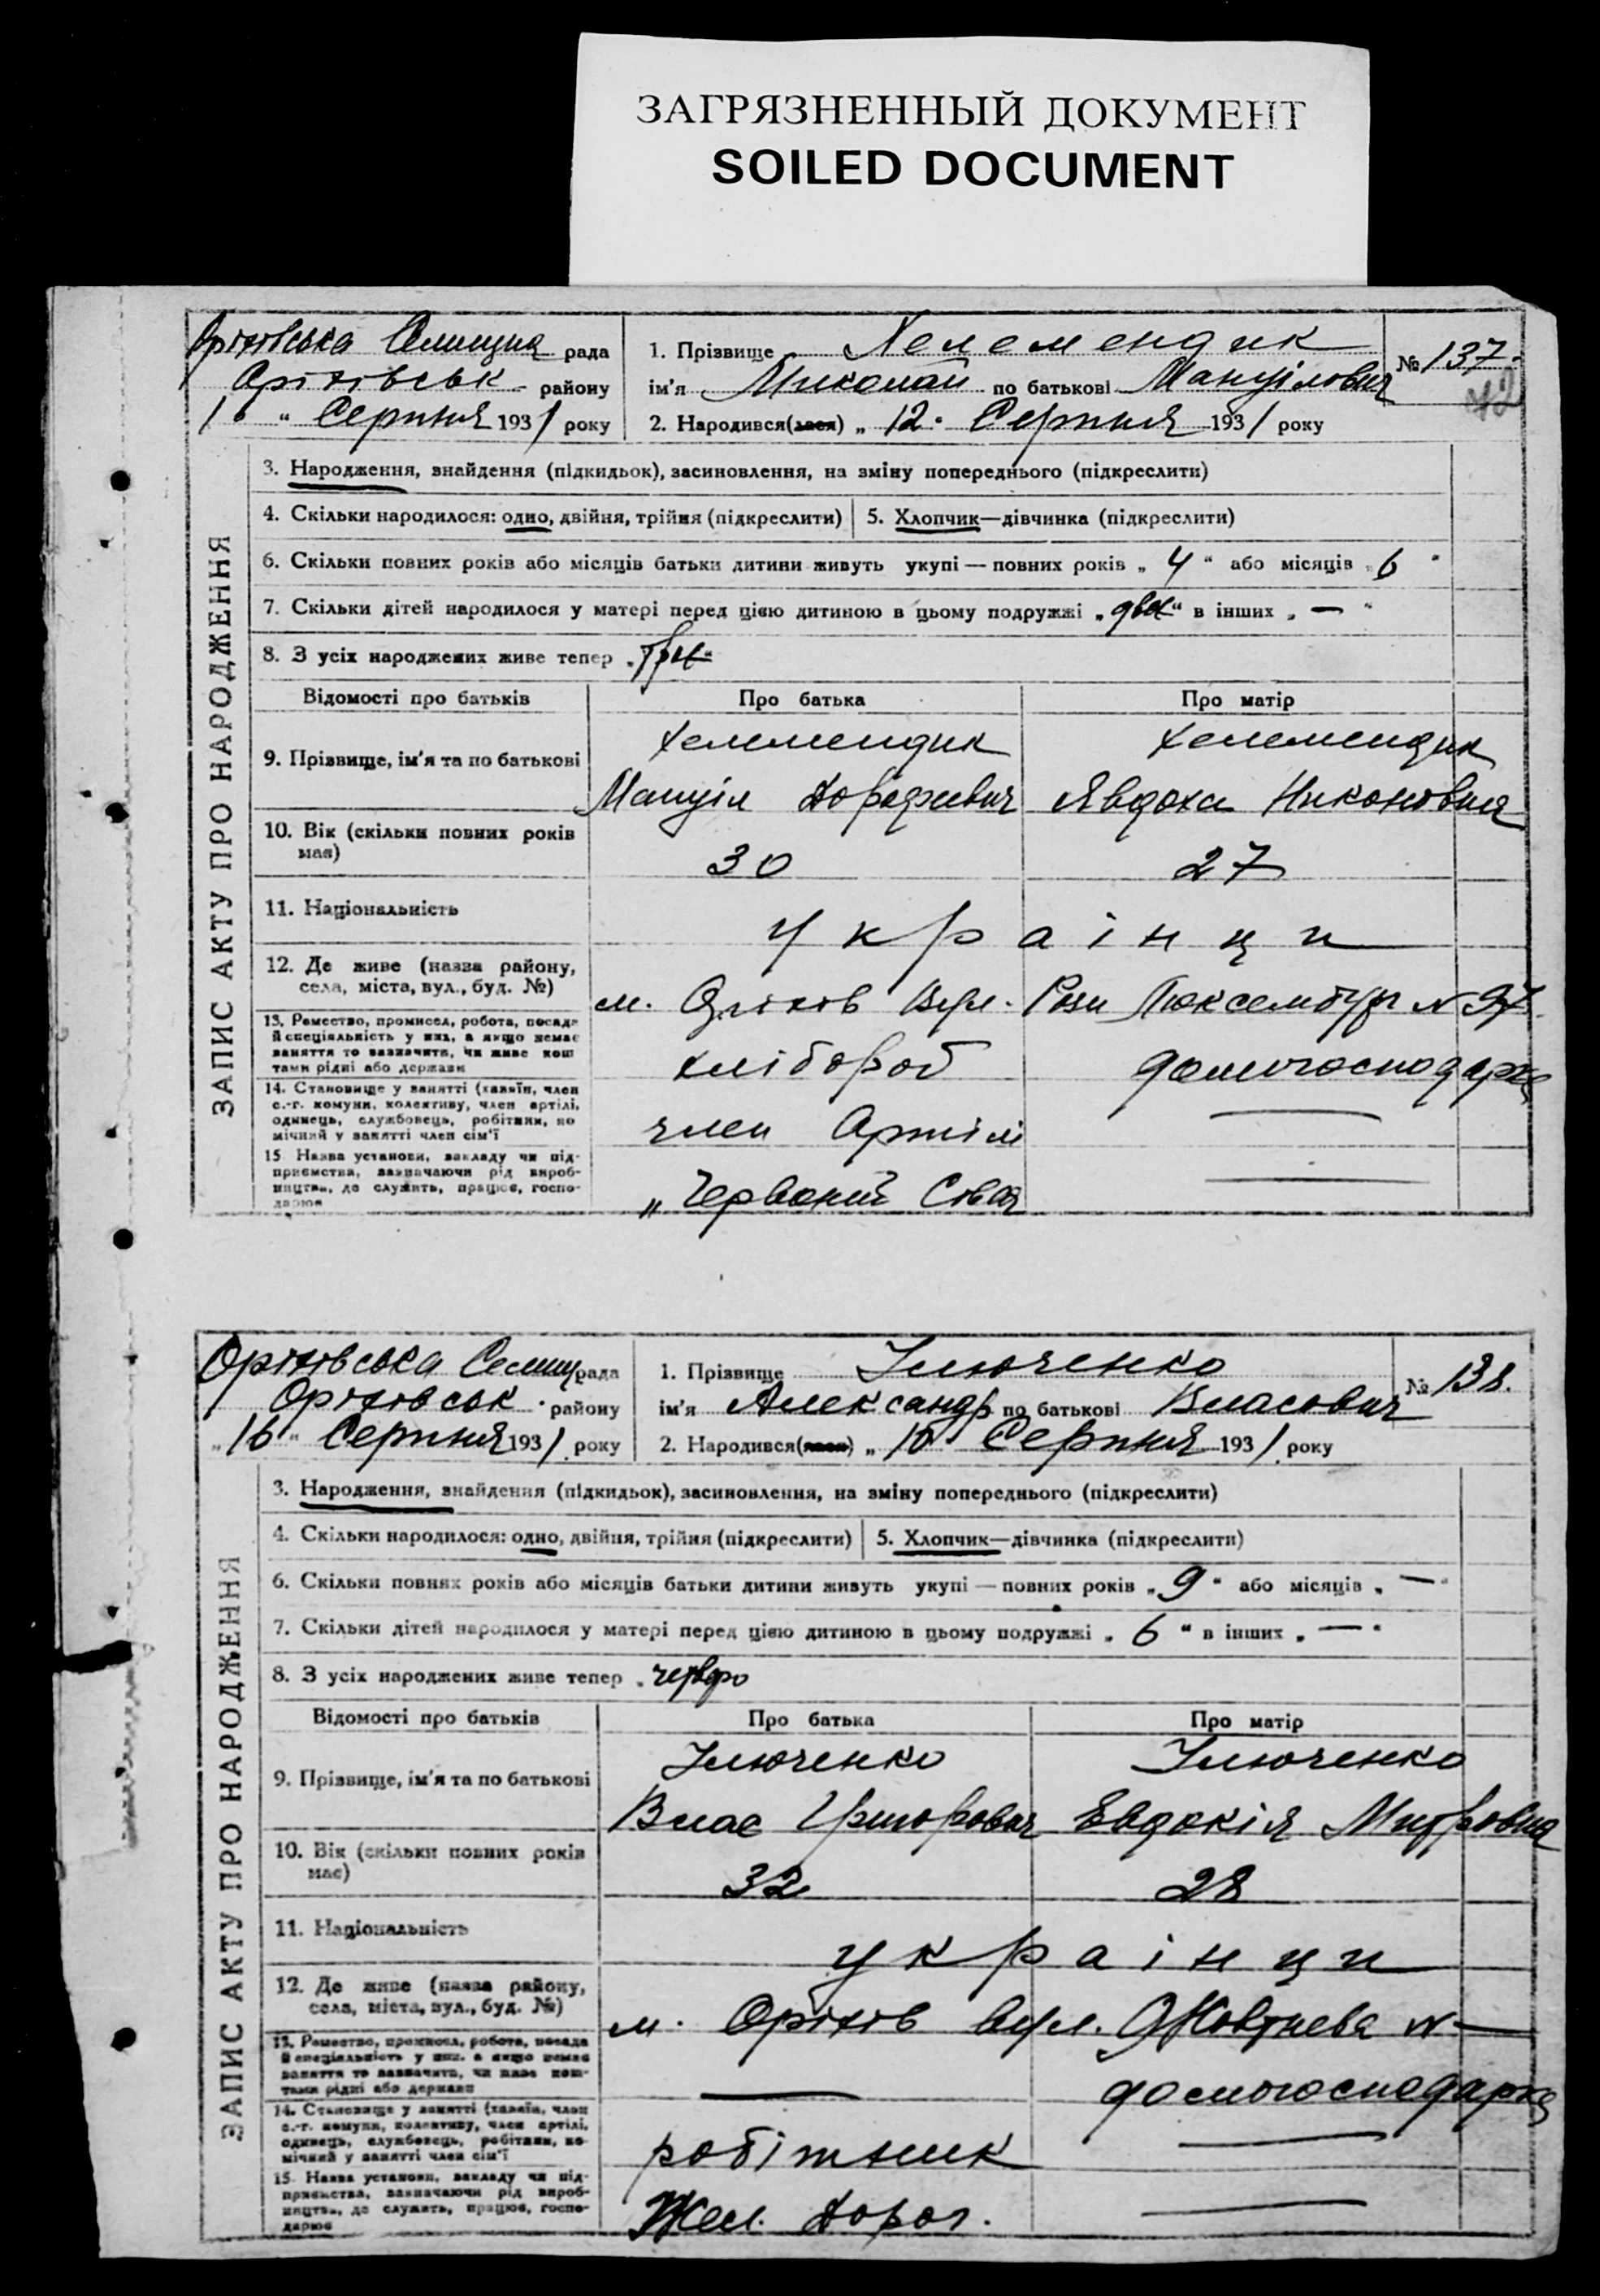 ЗАГРЯЗНЕННЫЙ ДОКУМЕНТ
SOILED DOCUMENT
Оріхівська Селищна рада
Оріхівськ району
16 " Серпня 1931 року
1. Прізвище Хелемендик
ім'я Миколай по батькові Мануілович
2. Народився(лася) „ 12. Серпня 1931 року
№ 137.
42
ЗАПИС АКТУ ПРО НАРОДЖЕННЯ
3. Народження, знайдення (підкидьок), засиновлення, на зміну попереднього (підкреслити)
4. Скільки народилося: одно, двійня, трійня (підкреслити)
5. Хлопчик—дівчинка (підкреслити)
6. Скільки повних років або місяців батьки дитини живуть укупі — повних років „ 4 " або місяців „ 6 "
7. Скільки дітей народилося у матері перед цією дитиною в цьому подружжі „ двох " в інших „ — "
8. З усіх народжених живе тепер „
Відомості про батьків
Про батька
Про матір
9. Прізвище, ім'я та по батькові
Хелемендик
Хелемендик
Мануіл
Явдоха Никоновна
10. Вік (скільки повних років має)
30
27
11. Національність
українци
12. Де живе (назва району, села, міста, вул., буд. №)
м. Оріхів Вул. Рози Люксембург № 97
13. Ремество, промисел, робота, посада й спеціальність у них, а якщо немає заняття то зазначити, чи живе коштами рідні або держави
хлібороб
домогосподарка
14. Становище у занятті (хазяїн, член с.-г. комуни, колективу, член артілі, одинець, службовець, робітник, помічний у занятті член сім'ї
член Артілі
15 Назва установи, закладу чи підприємства, зазначаючи рід виробництва, де служить, працює, господарює
„ Червоний Сівач
Оріхівська Селищ рада
Оріхівськ району
„ 16 " Серпня 1931 року
1. Прізвище Ілюченко
ім'я Александр по батькові Власович
2. Народився(лася) „ 10 Серпня 1931 року
№ 138.
ЗАПИС АКТУ ПРО НАРОДЖЕННЯ
3. Народження, знайдення (підкидьок), засиновлення, на зміну попереднього (підкреслити)
4. Скільки народилося: одно, двійня, трійня (підкреслити)
5. Хлопчик—дівчинка (підкреслити)
6. Скільки повних років або місяців батьки дитини живуть укупі — повних років „ 9 " або місяців „ — "
7. Скільки дітей народилося у матері перед цією дитиною в цьому подружжі „ 6 " в інших „ — "
8. З усіх народжених живе тепер „ четверо
Відомості про батьків
Про батька
Про матір
9. Прізвище, ім'я та по батькові
Ілюченко
Ілюченко
Влас Григорович
Евдокія Митровна
10. Вік (скільки повних років має)
32
28
11. Національність
українци
12. Де живе (назва району, села, міста, вул., буд. №)
м. Оріхів вул. Жовтнева № —
13. Ремество, промисел, робота, посада й спеціальність у них, а якщо немає заняття то зазначити, чи живе коштами рідні або держави
домогосподарка
14. Становище у занятті (хазяїн, член с.-г. комуни, колективу, член артілі, одинець, службовець, робітник, помічний у занятті член сім'ї
робітник
15. Назва установи, закладу чи підприємства, зазначаючи рід виробництва, де служить, працює, господарює
Жел. Дорог.